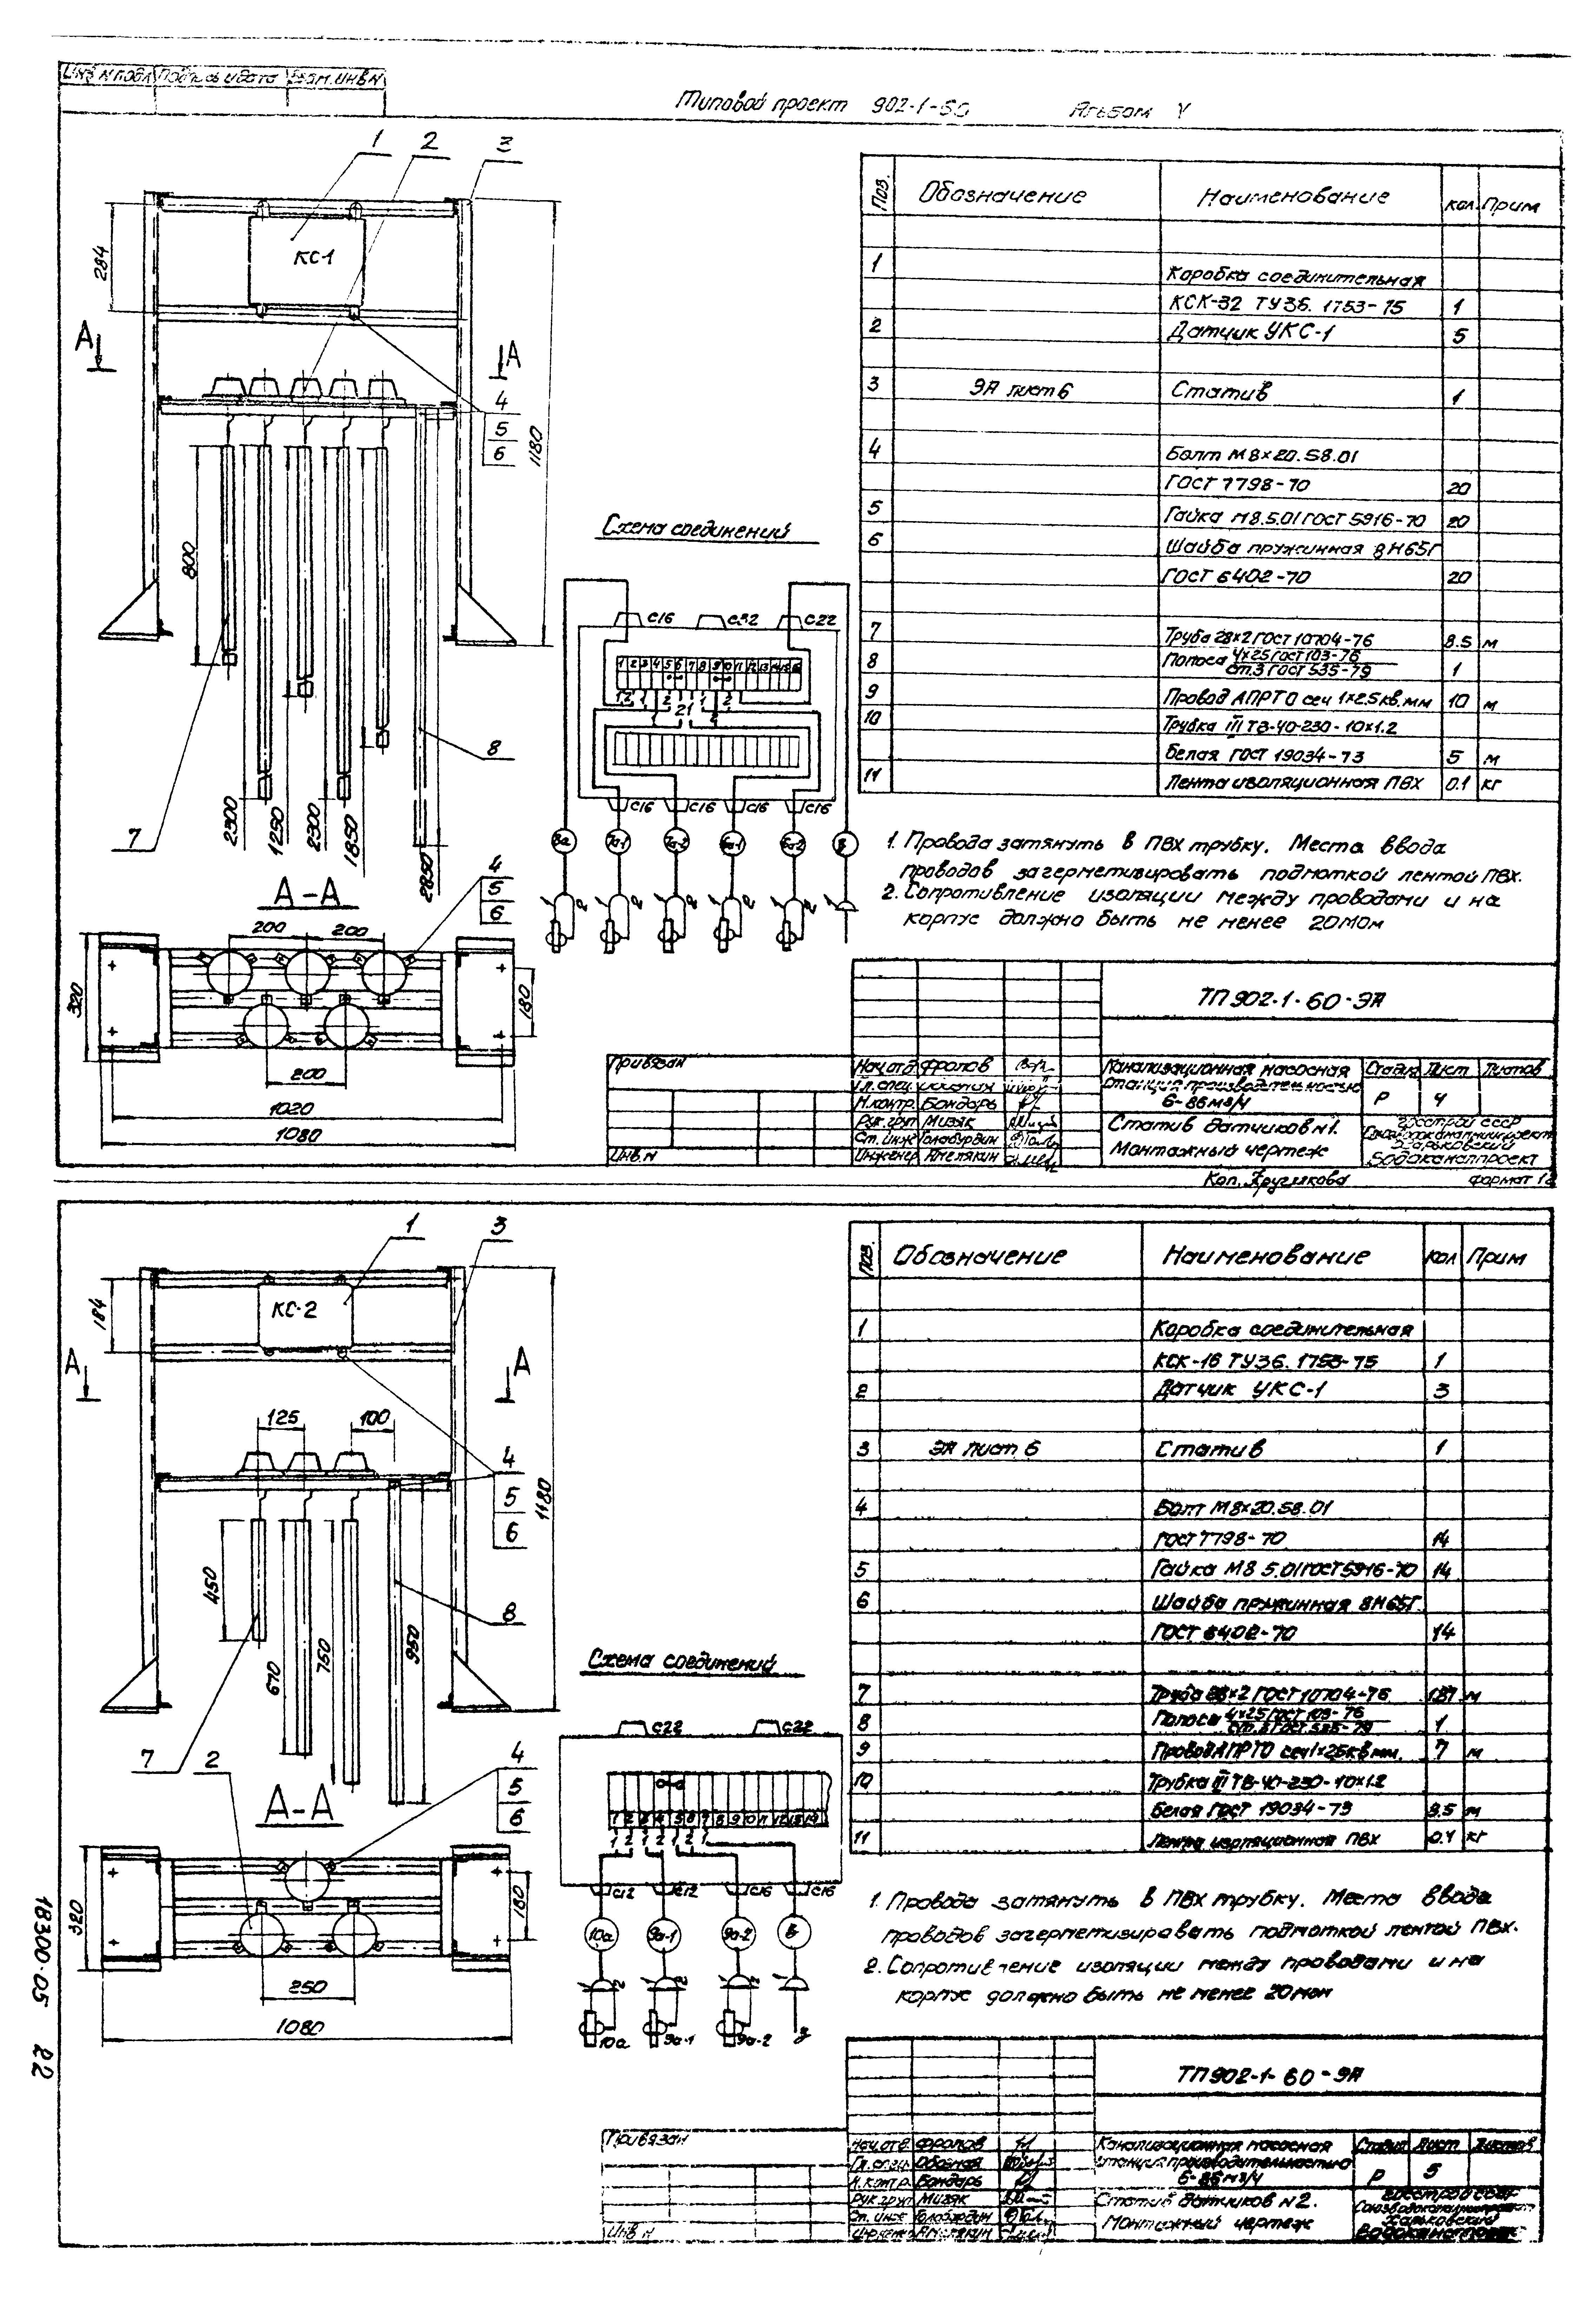 Типовой проект 902-1-60 Альбом V
Инв N подл Подпись и дата Взам.инв N
1 2 3
КС-1
284
А А
4
5
6
1180
800
2300
1250
2300
1850
2850
7
8
А-А
4
5
6
200 200
320
180
200
1020
1080
Схема соединений
С16 С32 С22
1 2 3 4 5 6 7 8 9 10 11 12 13 14 15 16
С16 С16 С16 С16
8а 7а-1 7а-2 6а-1 6а-2 В
Поз. Обозначение Наименование кол. Прим
1 Коробка соединительная
КСК-32 ТУ36.1753-75 1
2 Датчик УКС-1 5
3 ЭА лист 6 Статив 1
4 Болт М8×20.58.01
ГОСТ 7798-70 20
5 Гайка М8.5.01 ГОСТ 5916-70 20
6 Шайба пружинная 8Н65Г
ГОСТ 6402-70 20
7 Труба 28×2 ГОСТ 10704-76 8.5 м
8 Полоса 4×25 ГОСТ 103-76
ст.3 ГОСТ 535-79 1
9 Провод АПРТО сеч 1×2.5кв.мм 10 м
10 Трубка III ТВ-40-230-10×1.2
белая ГОСТ 19034-73 5 м
11 Лента изоляционная ПВХ 0.1 кг
1. Провода затянуть в ПВХ трубку. Места ввода
проводов загерметизировать подмоткой лентой ПВХ.
2. Сопротивление изоляции между проводами и на
корпус должно быть не менее 20МОм
ТП902-1-60-ЭА
Привязан
Инв.N
Нач.отд Фролов
Гл.спец.
Н.контр. Бондарь
Рук.груп Мизяк
Ст.инж Голобурдин
Инженер Ямелякин
Канализационная насосная
станция производительностью
6-86м3/ч
Стадия Лист Листов
Р 4
Статив датчиков N1.
Монтажный чертеж
Госстрой СССР
Союзводоканалниипроект
Харьковский
Водоканалпроект
Коп. Кругликова формат 12
1 3
КС-2
184
А А
125 100
4
5
6
1180
450
670
760
950
7
8
2
А-А
4
5
6
320
180
250
1080
Схема соединений
С22 С22
1 2 3 4 5 6 7 8 9 10 11 12 13 14
1 2 1 2 1 2 1
С12 С12 С16 С16
10а 9а-1 9а-2 В
10а 9а-1 9а-2
Поз. Обозначение Наименование Кол Прим
1 Коробка соединительная
КСК-16 ТУ36.1753-75 1
2 Датчик УКС-1 3
3 ЭА лист 6 Статив 1
4 Болт М8×20.58.01
ГОСТ 7798-70 14
5 Гайка М8 5.01 ГОСТ 5916-70 14
6 Шайба пружинная 8Н65Г.
ГОСТ 6402-70 14
7 Труба 28×2 ГОСТ 10704-76 1.87 м
8 Полоса 4×25 ГОСТ 103-76
ст.3 ГОСТ 535-79 1
9 Провод АПРТО сеч 1×2.5кв мм. 7 м
10 Трубка III ТВ-40-230-10×1.2
белая ГОСТ 19034-73 3.5 м
11 Лента изоляционная ПВХ 0.1 кг
1. Провода затянуть в ПВХ трубку. Места ввода
проводов загерметизировать подмоткой лентой ПВХ.
2. Сопротивление изоляции между проводами и на
корпус должно быть не менее 20мом
ТП902-1-60-ЭА
Привязан
Инв.N
Нач.отд. Фролов
Гл.спец.
Н.контр. Бондарь
Рук.груп Мизяк
Ст.инж Голобурдин
Инженер Ямелякин
Канализационная насосная
станция производительностью
6-86м3/ч
Стадия Лист Листов
Р 5
Статив датчиков N2.
Монтажный чертеж
Госстрой СССР
Союзводоканалниипроект
Харьковский
Водоканалпроект
18300-05 22